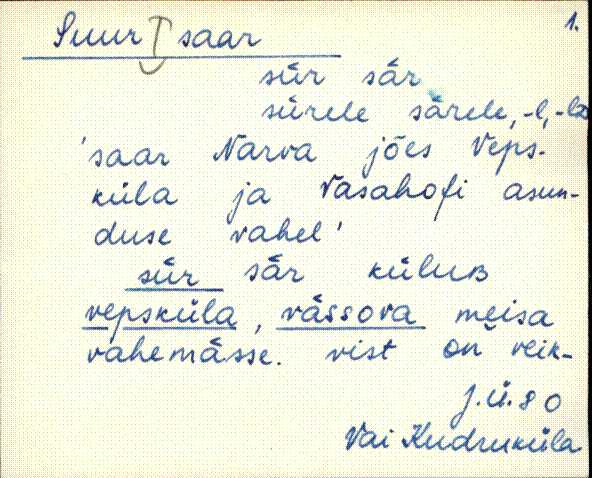 Suur saar
1.
sūr sār
sūrele sārele, -l, -ld
'saar Narva jões Veps-
küla ja Vasahofi asun-
duse vahel'
sūr sār külub
vepsküla, vässova meisa
vahemässe. vist on veik-
J.Ü. 80
Vai Kudruküla